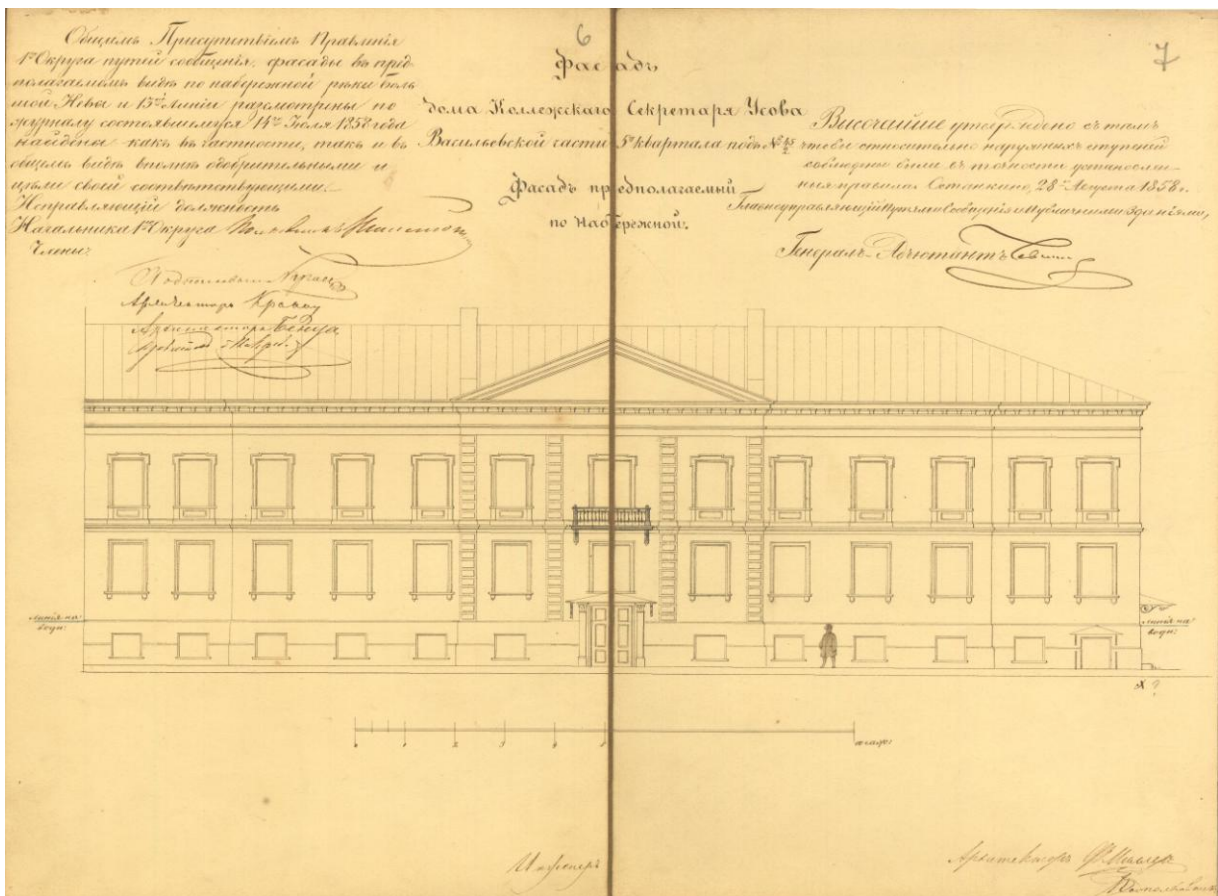 6
7
Общимъ Присутствіемъ Правленія
1го Округа путей сообщенія, фасады въ пред-
полагаемомъ видѣ по набережной рѣки боль-
шой Невы и 15й линіи разсмотрѣны по
журналу состоявшемуся 14го Іюля 1858 года
найдены какъ въ частности, такъ и въ
общемъ видѣ вполнѣ одобрительными и
цѣли своей соотвѣтствующими.
Исправляющій должность
Начальника 1го Округа
Члены:
Архитекторъ
Архитекторъ
Фасадъ
дома Коллежскаго Секретаря Усова
Васильевской части 5го квартала подъ №
Фасадъ предполагаемый
по Набережной.
Высочайше утверждено съ тѣмъ
чтобы относительно наружныхъ ступеней
соблюдены были въ точности установлен-
ныя правила. 28го Августа 1858 г.
Главноуправляющій Путями Сообщенія и Публичными Зданіями,
Генералъ-Адъютантъ
линія на-
водн:
линія на-
водн:
саж:
Инженеръ
Архитекторъ